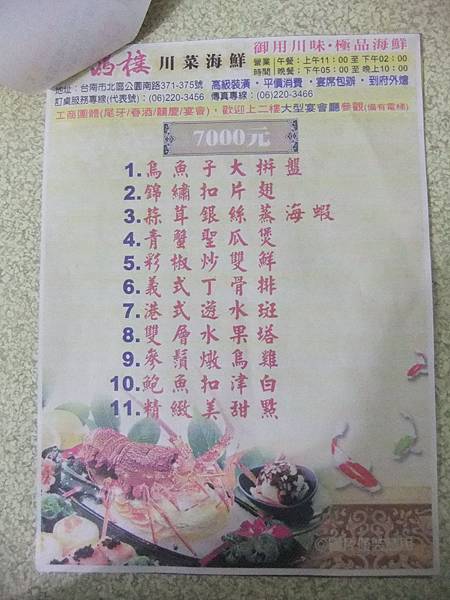 樓 川菜海鮮
御用川味•極品海鮮
營業 午餐:上午11:00 至 下午02:00
時間 晚餐:下午05:00 至 晚上10:00
地址:台南市北區公園南路371-375號 高級裝潢•平價消費•宴席包辦•到府外燴
訂桌服務專線(代表號):(06)220-3456 傳真專線:(06)220-3466
工商團體(尾牙/春酒/慶/宴會)、歡迎上二樓大型宴會廳參觀(備有電梯)
7000元
1.烏魚子大拼盤
2.錦繡扣片翅
3.蒜茸銀絲蒸海蝦
4.青蟹聖瓜煲
5.彩椒炒雙鮮
6.義式丁骨排
7.港式遊水斑
8.雙層水果塔
9.參鬚燉烏雞
10.鮑魚扣津白
11.精緻美甜點